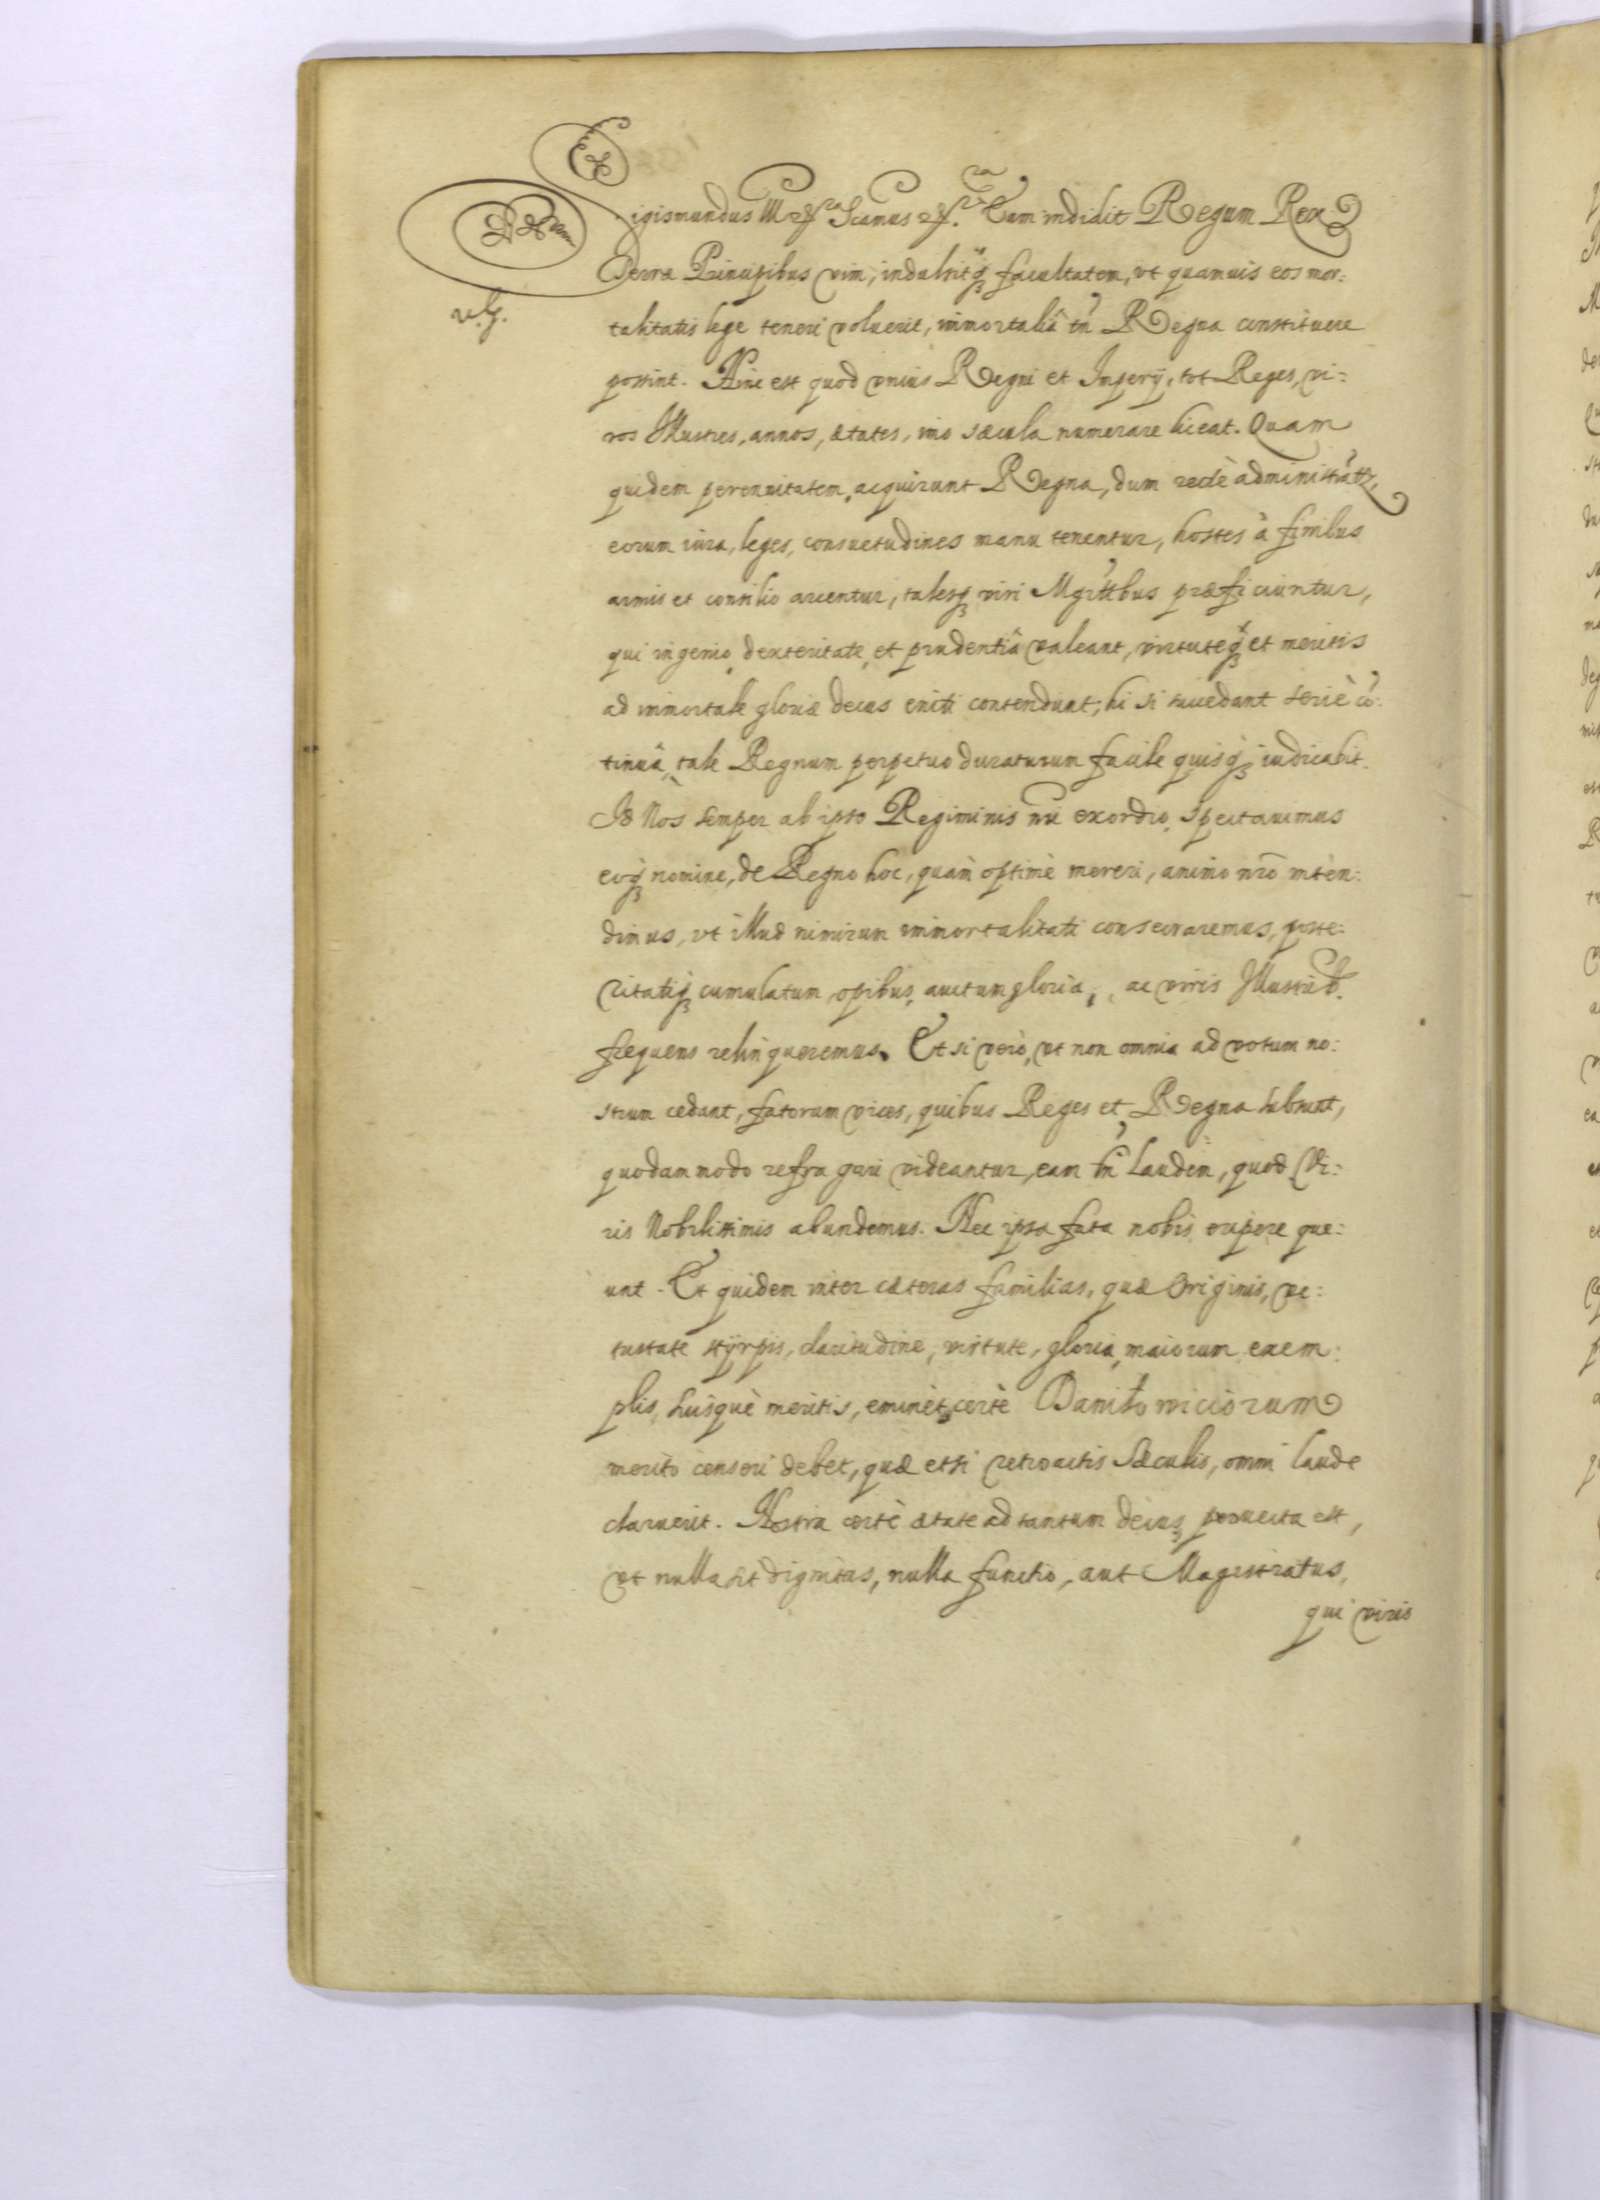 Sigismundus III etc. Scimus etc. Eam indidit Regum Rex
Terra Principibus vim, indulsitq; facultatem, vt quamuis eos mor:
talitatis lege teneri voluerit, immortaliâ tn̄ Regna constituere
possint. Hinc est quod vnius Regni et Imperij, tot Reges, vi:
ros Illustres, annos, ætates, imo sæcula numerare liceat. Quam
quidem perennitatem, acquirunt Regna, dum rectè administrātr,
eorum iura, leges, consuetudines manu tenentur, hostes à finibus
armis et consilio arcentur, talesq; viri Mgrātibus præficiuntur,
qui ingenio, dexteritate, et prudentiâ valeant, virtuteq; et meritis
ad immortale gloriæ decus eniti contendunt; hi si succedant seriè cō:
tinuâ, tale Regnum perpetuo duraturum facile quisq; iudicabit.
Id Nos semper ab ipso Regiminis nr̄i exordio, spectauimus
eoq; nomine, de Regno hoc, quàm optimè mereri, animo nr̄o inten:
dimus, vt illud nimirum immortalitati consecraremus, poste:
ritatiq; cumulatum opibus, auctum gloria, ac viris Illustrib.
frequens relinqueremus. Et si vero, vt non omnia ad votum no:
strum cedant, fatorum vices, quibus Reges et Regna subsunt,
quodammodo refragari videantur, eam tn̄ laudem, quod Vi:
ris Nobilissimis abundemus. Nec ipsa fata nobis eripere que:
unt. Et quidem inter cæteras familias, quæ Originis, ve:
tustate styrpis, claritudine, virtute, gloria, maiorum exem:
plis, suisquè meritis, eminēt, certè Daniłowiciorum
meritò censeri debet, quæ etsi retroactis sæculis, omni laude
claruerit. Nostra certè ætate ad tantum decus, peruecta est,
vt nulla sit dignitas, nulla functio, aut Magistratus,
qui viris